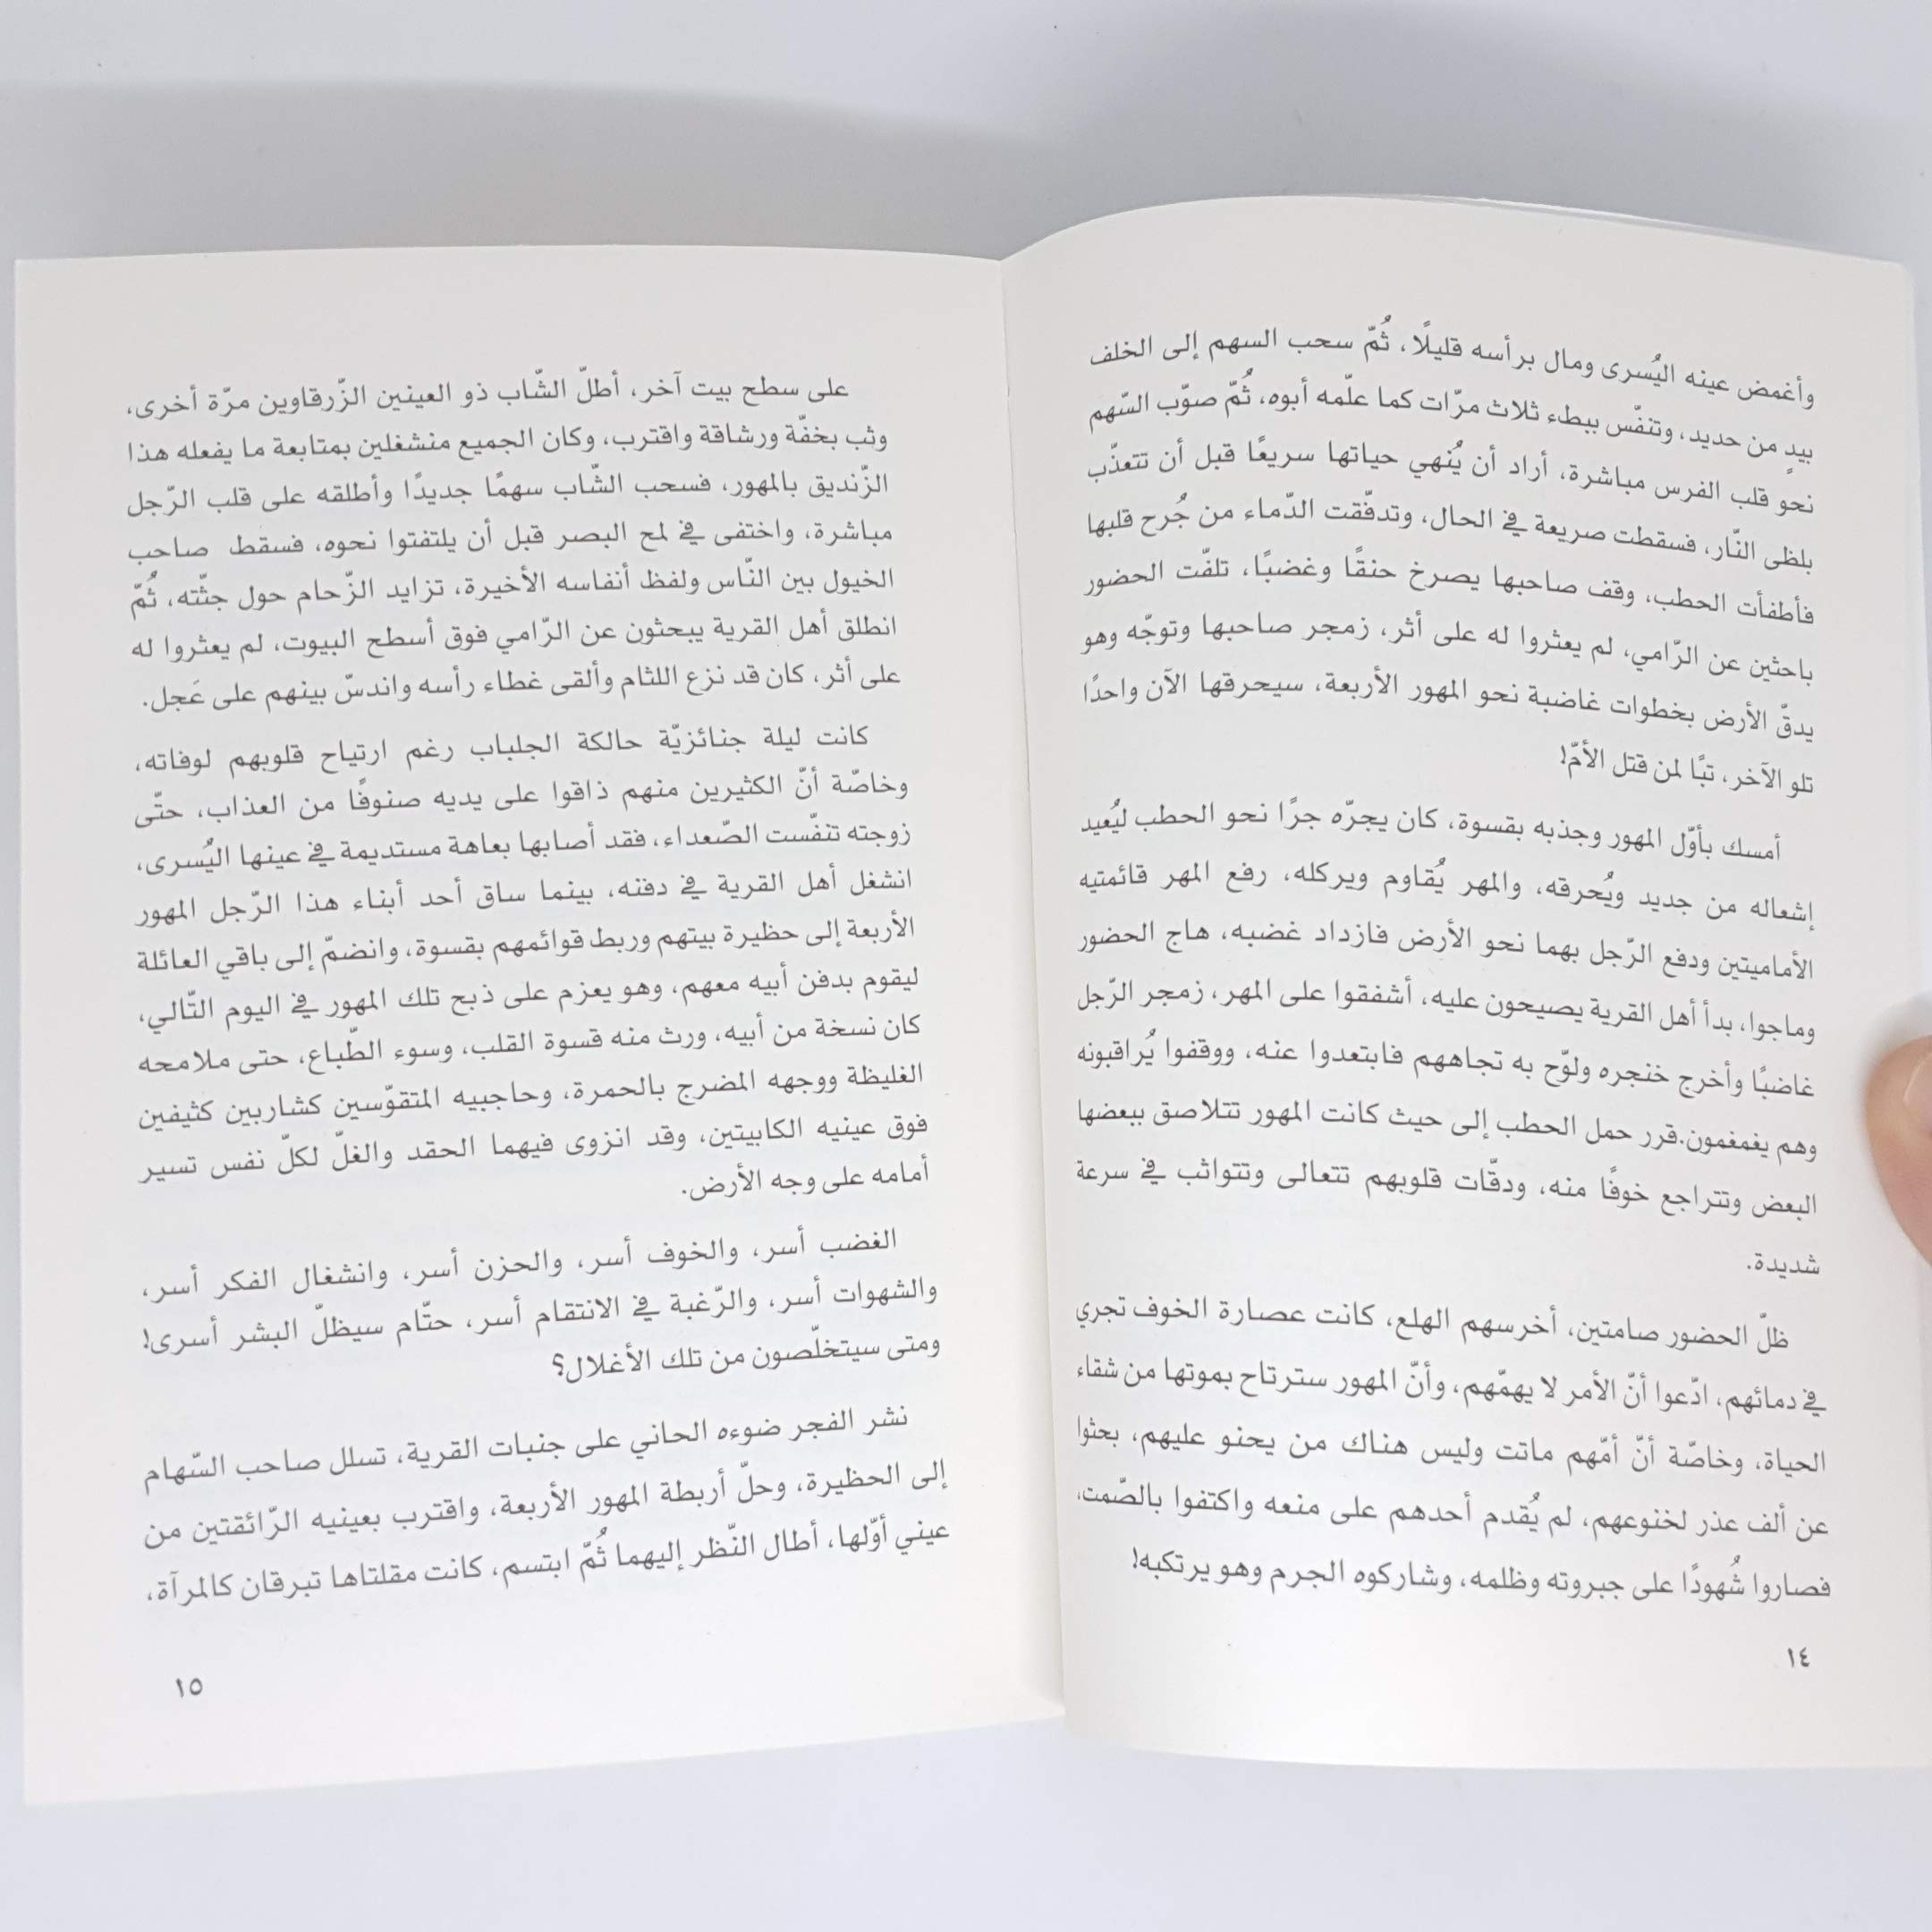 وأغمض عينه اليُسرى ومال برأسه قليلًا، ثُمّ سحب السهم إلى الخلف
بيدٍ من حديد، وتنفّس ببطء ثلاث مرّات كما علّمه أبوه، ثُمّ صوّب السّهم
نحو قلب الفرس مباشرة، أراد أن يُنهي حياتها سريعًا قبل أن تتعذّب
بلظى النّار، فسقطت صريعة في الحال، وتدفّقت الدّماء من جُرح قلبها
فأطفأت الحطب، وقف صاحبها يصرخ حنقًا وغضبًا، تلفّت الحضور
باحثين عن الرّامي، لم يعثروا له على أثر، زمجر صاحبها وتوجّه وهو
يدقّ الأرض بخطوات غاضبة نحو المهور الأربعة، سيحرقها الآن واحدًا
تلو الآخر، تبًّا لمن قتل الأمّ!
أمسك بأوّل المهور وجذبه بقسوة، كان يجرّه جرًا نحو الحطب ليُعيد
إشعاله من جديد ويُحرقه، والمهر يُقاوم ويركله، رفع المهر قائمتيه
الأماميتين ودفع الرّجل بهما نحو الأرض فازداد غضبه، هاج الحضور
وماجوا، بدأ أهل القرية يصيحون عليه، أشفقوا على المهر، زمجر الرّجل
غاضبًا وأخرج خنجره ولوّح به تجاههم فابتعدوا عنه، ووقفوا يُراقبونه
وهم يغمغمون.قرر حمل الحطب إلى حيث كانت المهور تتلاصق ببعضها
البعض وتتراجع خوفًا منه، ودقّات قلوبهم تتعالى وتتواثب في سرعة
شديدة.
ظلّ الحضور صامتين، أخرسهم الهلع، كانت عصارة الخوف تجري
في دمائهم، ادّعوا أنّ الأمر لا يهمّهم، وأنّ المهور سترتاح بموتها من شقاء
الحياة، وخاصّة أنّ أمّهم ماتت وليس هناك من يحنو عليهم، بحثوا
عن ألف عذر لخنوعهم، لم يُقدم أحدهم على منعه واكتفوا بالصّمت،
فصاروا شُهودًا على جبروته وظلمه، وشاركوه الجرم وهو يرتكبه!
١٤
على سطح بيت آخر، أطلّ الشّاب ذو العينين الزّرقاوين مرّة أخرى،
وثب بخفّة ورشاقة واقترب، وكان الجميع منشغلين بمتابعة ما يفعله هذا
الزّنديق بالمهور، فسحب الشّاب سهمًا جديدًا وأطلقه على قلب الرّجل
مباشرة، واختفى في لمح البصر قبل أن يلتفتوا نحوه، فسقط صاحب
الخيول بين النّاس ولفظ أنفاسه الأخيرة، تزايد الزّحام حول جثّته، ثُمّ
انطلق أهل القرية يبحثون عن الرّامي فوق أسطح البيوت، لم يعثروا له
على أثر، كان قد نزع اللثام وألقى غطاء رأسه واندسّ بينهم على عَجل.
كانت ليلة جنائزيّة حالكة الجلباب رغم ارتياح قلوبهم لوفاته،
وخاصّة أنّ الكثيرين منهم ذاقوا على يديه صنوفًا من العذاب، حتّى
زوجته تنفّست الصّعداء، فقد أصابها بعاهة مستديمة في عينها اليُسرى،
انشغل أهل القرية في دفنه، بينما ساق أحد أبناء هذا الرّجل المهور
الأربعة إلى حظيرة بيتهم وربط قوائمهم بقسوة، وانضمّ إلى باقي العائلة
ليقوم بدفن أبيه معهم، وهو يعزم على ذبح تلك المهور في اليوم التّالي،
كان نسخة من أبيه، ورث منه قسوة القلب، وسوء الطّباع، حتى ملامحه
الغليظة ووجهه المضرج بالحمرة، وحاجبيه المتقوّسين كشاربين كثيفين
فوق عينيه الكابيتين، وقد انزوى فيهما الحقد والغلّ لكلّ نفس تسير
أمامه على وجه الأرض.
الغضب أسر، والخوف أسر، والحزن أسر، وانشغال الفكر أسر،
والشهوات أسر، والرّغبة في الانتقام أسر، حتّام سيظلّ البشر أسرى!
ومتى سيتخلّصون من تلك الأغلال؟
نشر الفجر ضوءه الحاني على جنبات القرية، تسلل صاحب السّهام
إلى الحظيرة، وحلّ أربطة المهور الأربعة، واقترب بعينيه الرّائقتين من
عيني أوّلها، أطال النّظر إليهما ثُمّ ابتسم، كانت مقلتاها تبرقان كالمرآة،
١٥